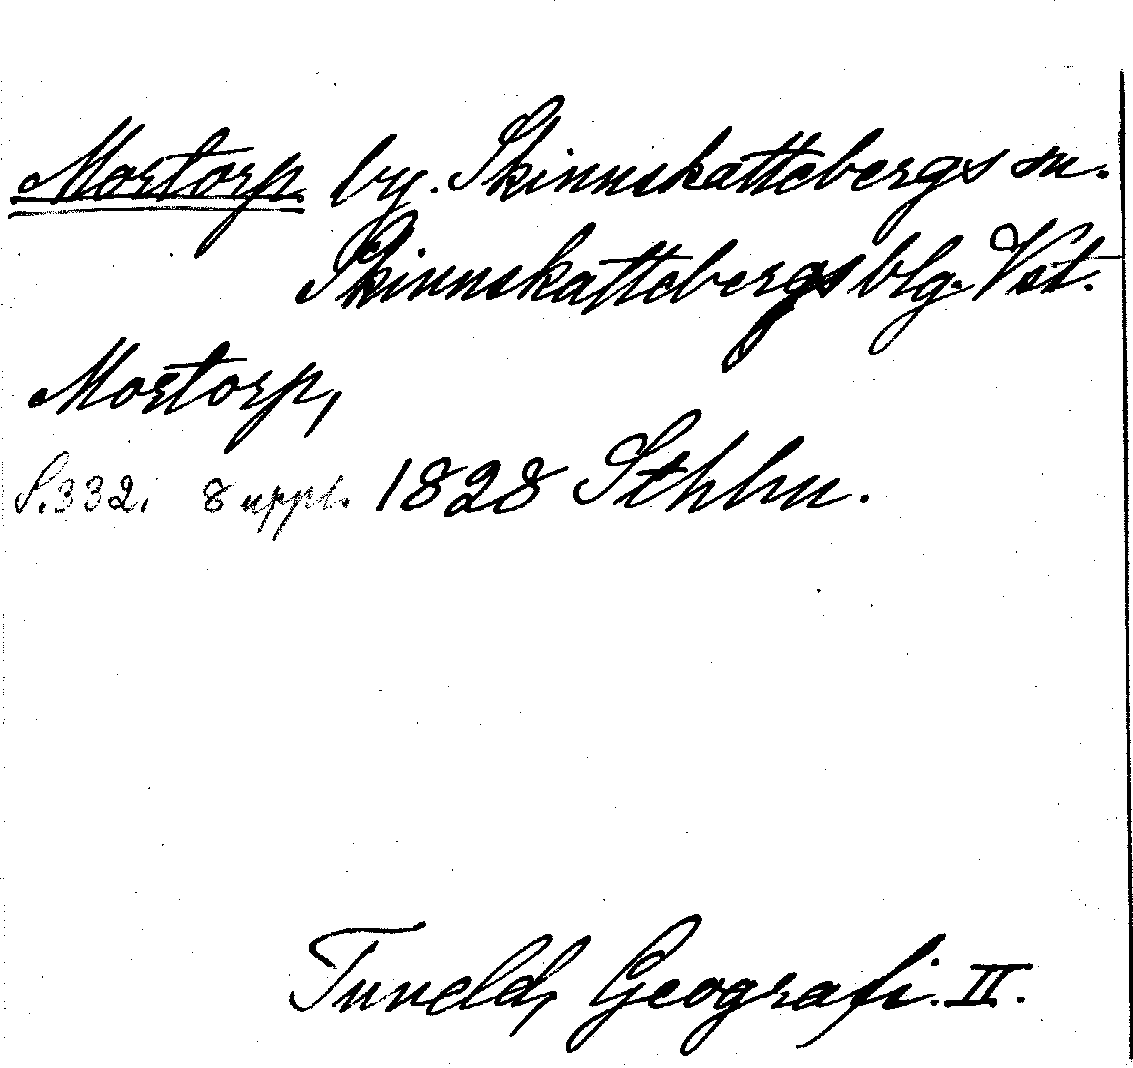 Mortorp by. Skinnskattebergs sn.
Skinnskattebergs blg. Vst.
Mortorp,
S. 332. 8 uppl. 1828 Sthlm.
Tuneld, Geografi. II.